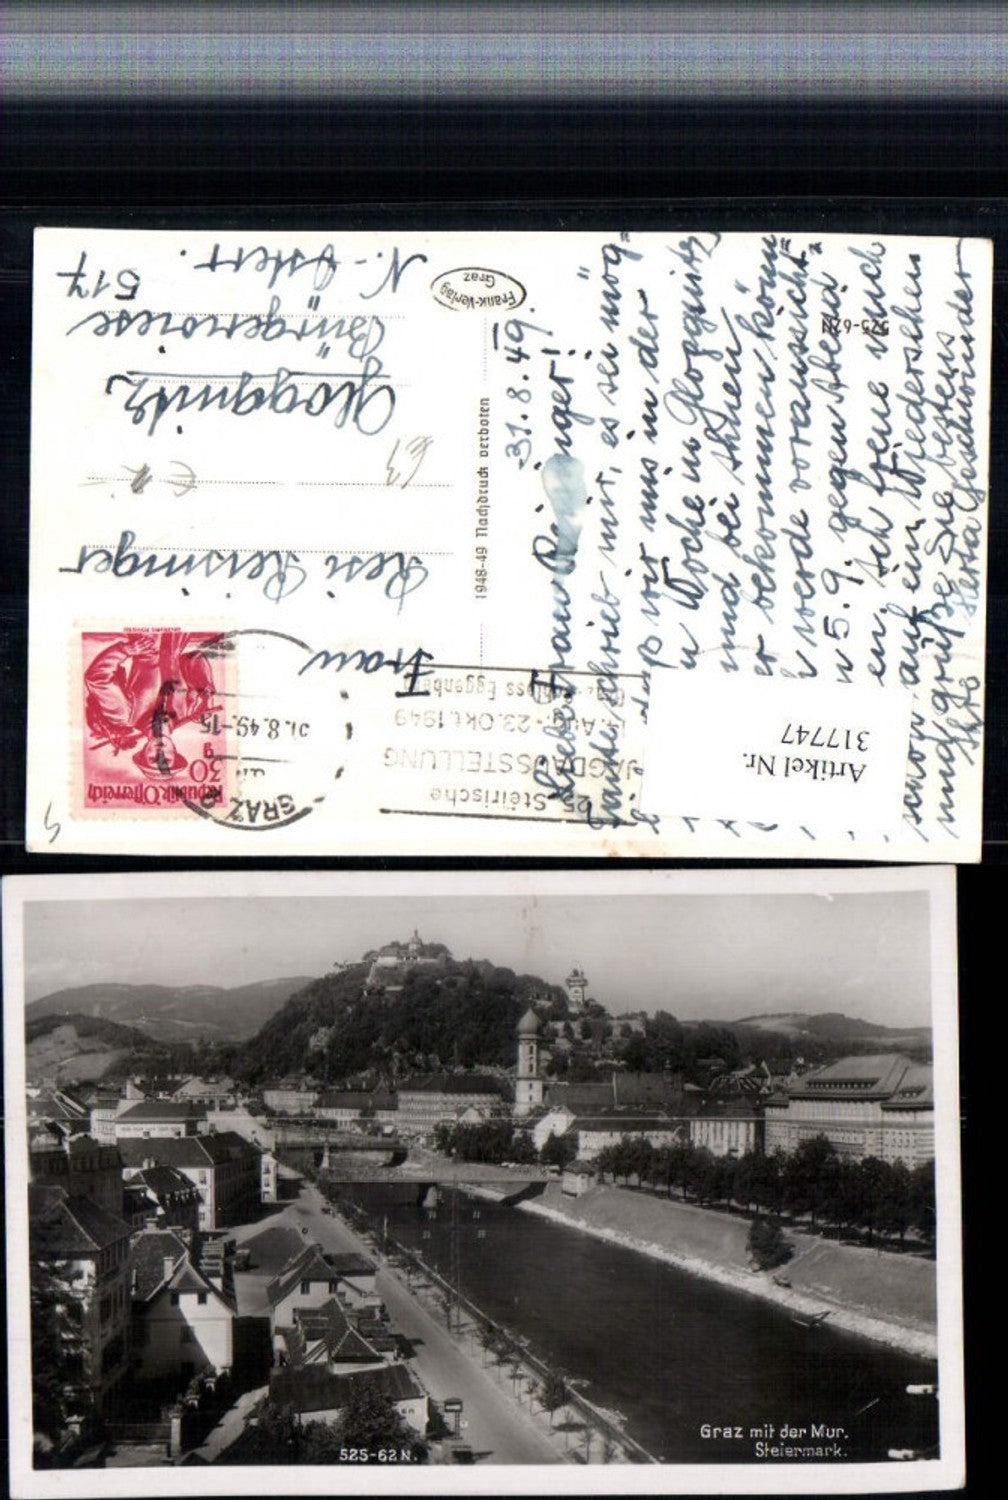 Liebe Frau Reisinger!
31.8.49.
schrieb mir, es sei mög-
wir uns in der
Woche in Gloggnitz
und bei Ihnen
bekommen könn
werde voraussicht-
5.9. gegen Abend
Ich freue mich
schon auf ein Wiedersehen
und grüße Sie bestens
Ihre Herta Geschwinder
525-62N
Artikel Nr.
317747
Frank-Verlag
Graz
1948-49 Nachdruck verboten
25. Steirische
JAGDAUSSTELLUNG
14. Aug.-23. Okt. 1949
Schloss Eggenberg
GRAZ
31.8.49.-15
REPUBLIK ÖSTERREICH
30
g
Frau
Resi Reisinger
Gloggnitz
Bürgerwiese
517
N.-Österr.
Graz mit der Mur.
Steiermark.
525-62N.